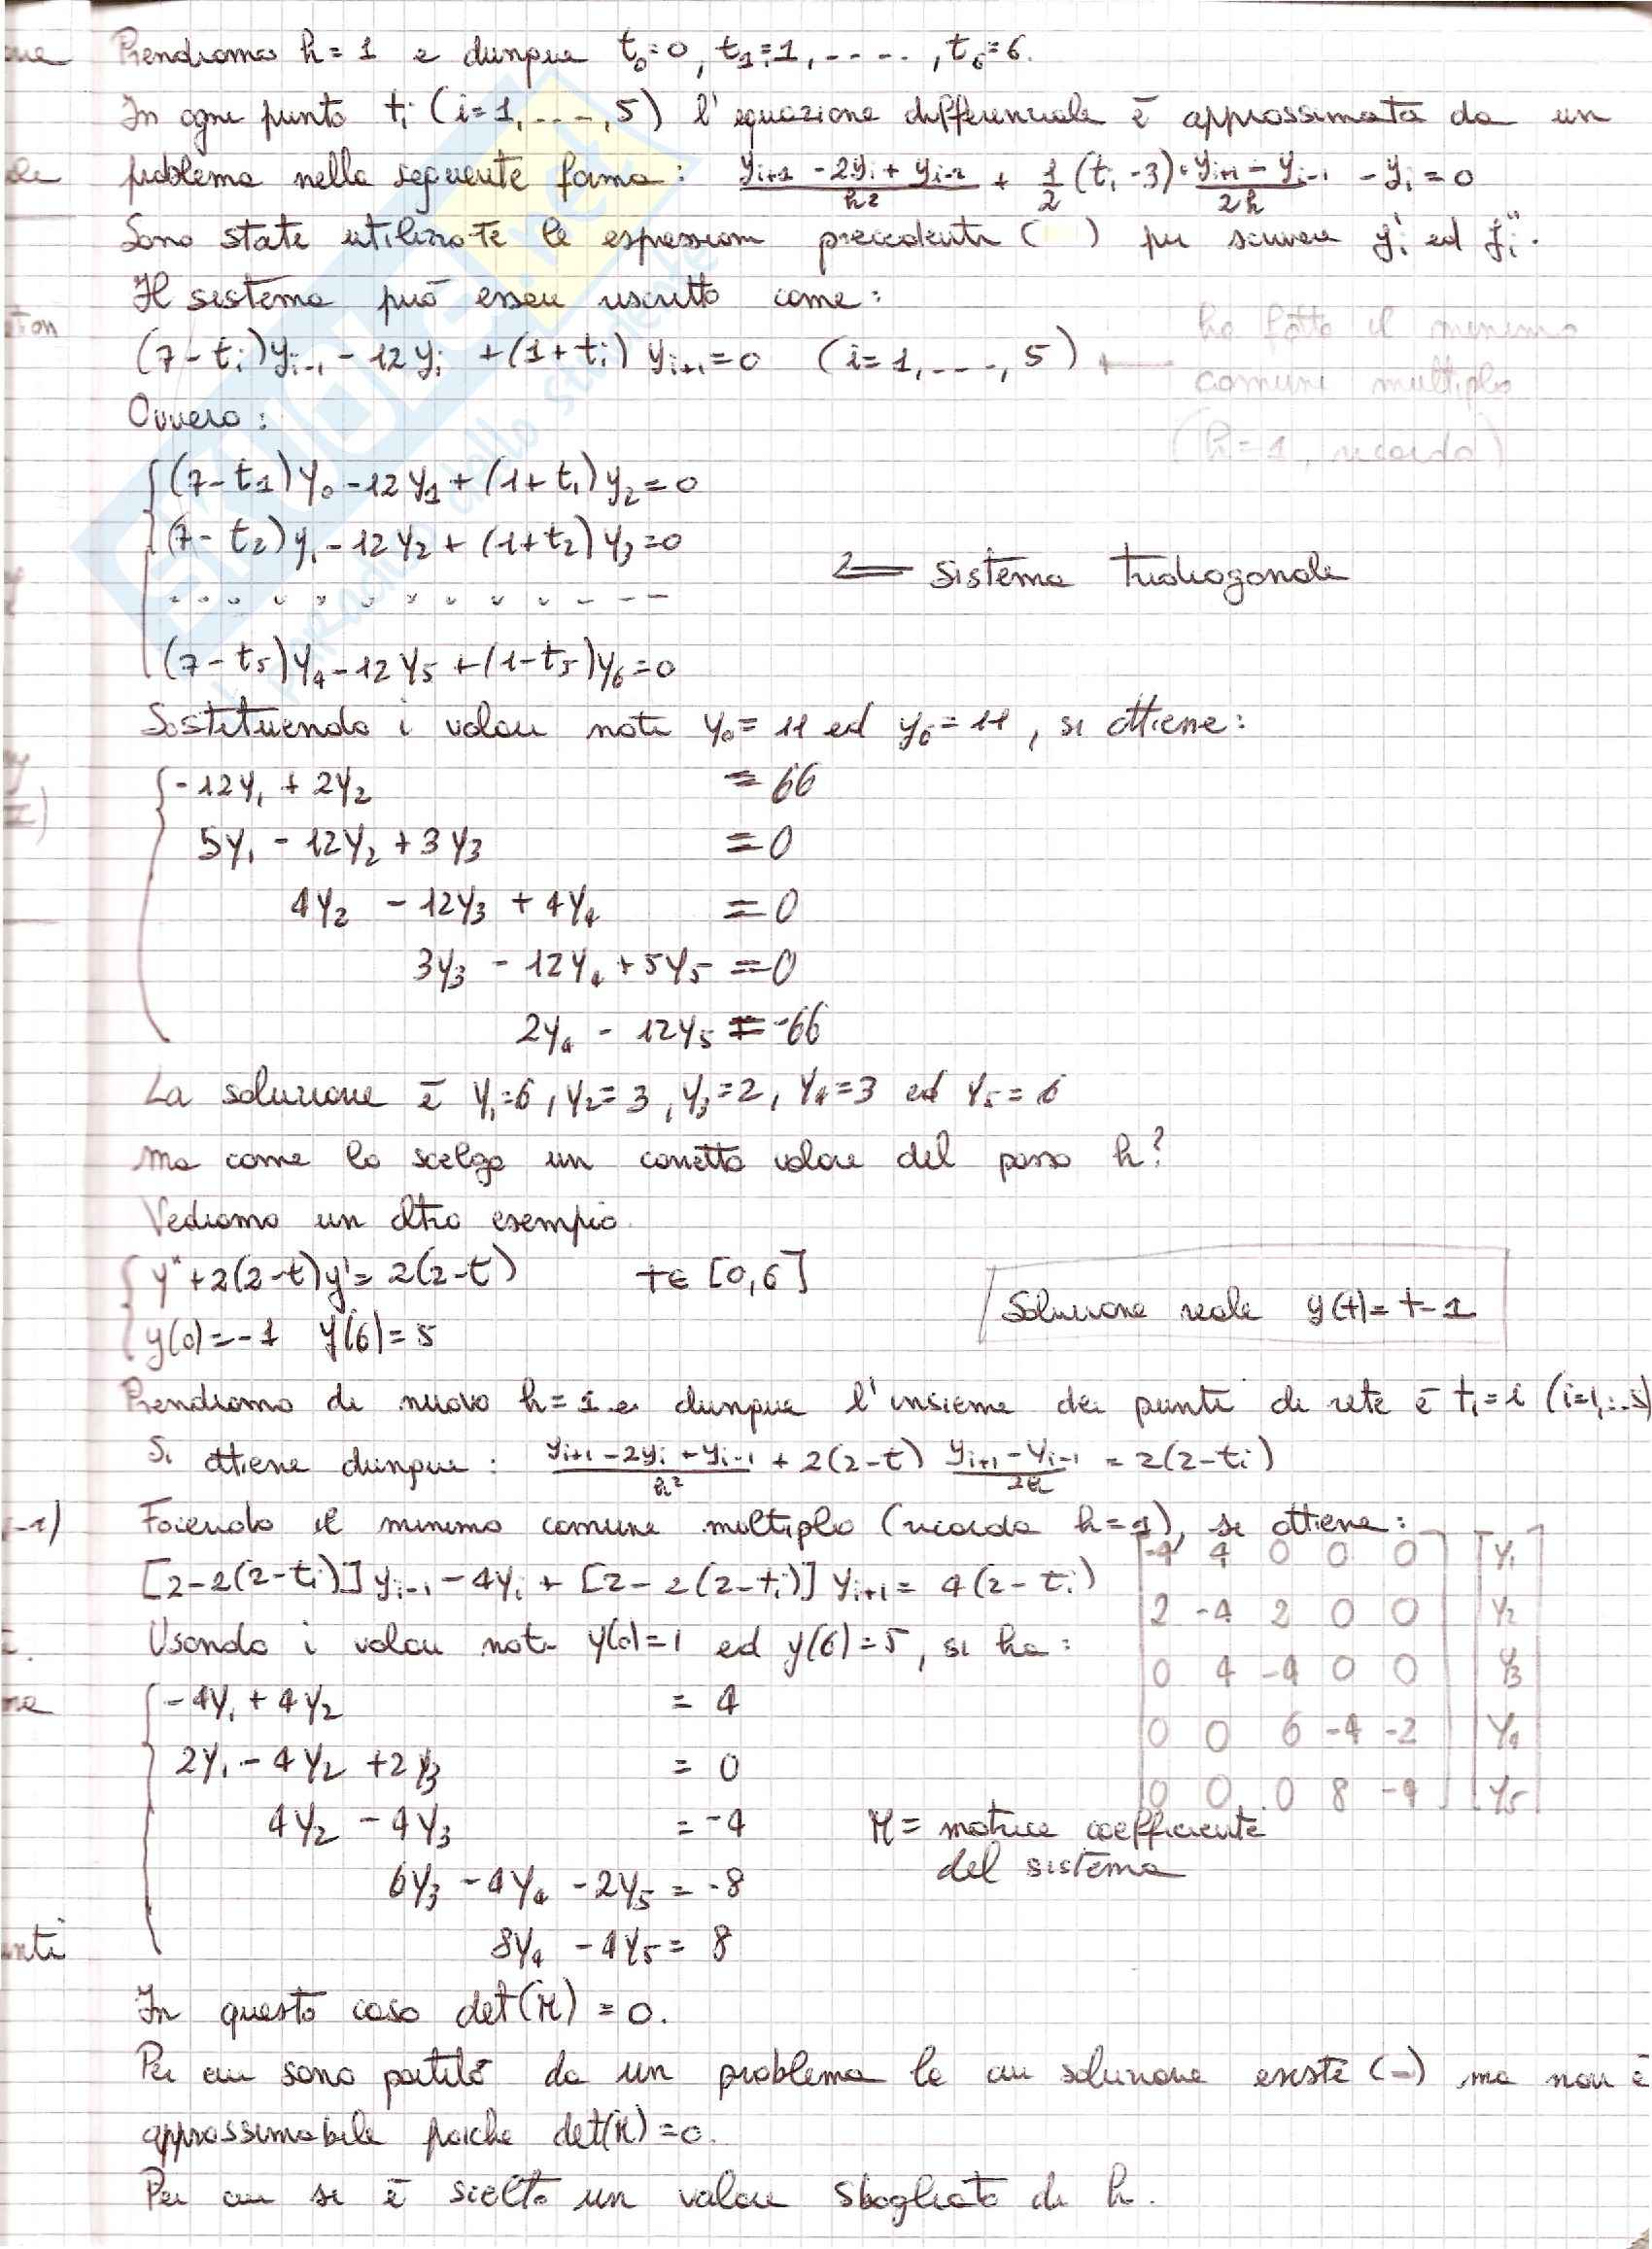 Prendiamo h = 1 e dunque t₀=0, t₁=1, ....., t₆=6.
In ogni punto tᵢ (i=1,....,5) l'equazione differenziale è approssimata da un
problema nella seguente forma: (yᵢ₊₁ - 2yᵢ + yᵢ₋₁)/h² + 1/2 (tᵢ - 3)·(yᵢ₊₁ - yᵢ₋₁)/2h - yᵢ = 0
Sono state utilizzate le espressioni precedenti ( ) per scrivere y'ᵢ ed y''ᵢ.
Il sistema può essere riscritto come:
(7 - tᵢ)yᵢ₋₁ - 12yᵢ + (1+tᵢ) yᵢ₊₁ = 0 (i=1,....,5) ←
ha fatto il minimo
comune multiplo
(h=1, ricorda)
Ovvero:
(7-t₁)y₀ - 12y₁ + (1+t₁)y₂ = 0
(7-t₂)y₁ - 12y₂ + (1+t₂)y₃ = 0
Sistema tridiagonale
. . . . . . . . . . . .
(7-t₅)y₄ - 12y₅ + (1-t₅)y₆ = 0
Sostituendo i valori noti y₀ = 11 ed y₆ = 11, si ottiene:
-12y₁ + 2y₂ = 66
5y₁ - 12y₂ + 3y₃ = 0
4y₂ - 12y₃ + 4y₄ = 0
3y₃ - 12y₄ + 5y₅ = 0
2y₄ - 12y₅ = -66
La soluzione è y₁=6, y₂=3, y₃=2, y₄=3 ed y₅=6
ma come lo scelgo un corretto valore del passo h?
Vediamo un altro esempio.
y" + 2(2-t)y' = 2(2-t) t∈[0,6]
y(0)=-1 y(6)=5
Soluzione reale y(t)=t-1
Prendiamo di nuovo h=1 e dunque l'insieme dei punti di rete è tᵢ=i (i=1,..5)
Si ottiene dunque: (yᵢ₊₁ - 2yᵢ + yᵢ₋₁)/h² + 2(2-t) (yᵢ₊₁ - yᵢ₋₁)/2h = 2(2-tᵢ)
Facendo il minimo comune multiplo (ricorda h=1), si ottiene:
[2-2(2-tᵢ)] yᵢ₋₁ - 4yᵢ + [2-2(2-tᵢ)] yᵢ₊₁ = 4(2-tᵢ)
Usando i valori noti y(0)=1 ed y(6)=5, si ha:
-4 4 0 0 0 y₁
2 -4 2 0 0 y₂
0 4 -4 0 0 y₃
0 0 6 -4 -2 y₄
0 0 0 8 -4 y₅
-4y₁ + 4y₂ = 4
2y₁ - 4y₂ + 2y₃ = 0
4y₂ - 4y₃ = -4
6y₃ - 4y₄ - 2y₅ = -8
8y₄ - 4y₅ = 8
M = matrice coefficiente
del sistema
In questo caso det(M) = 0.
Per cui sono partito da un problema la cui soluzione esiste (-) ma non è
approssimabile poiche det(M)=0.
Per cui si è scelto un valore sbagliato di h.